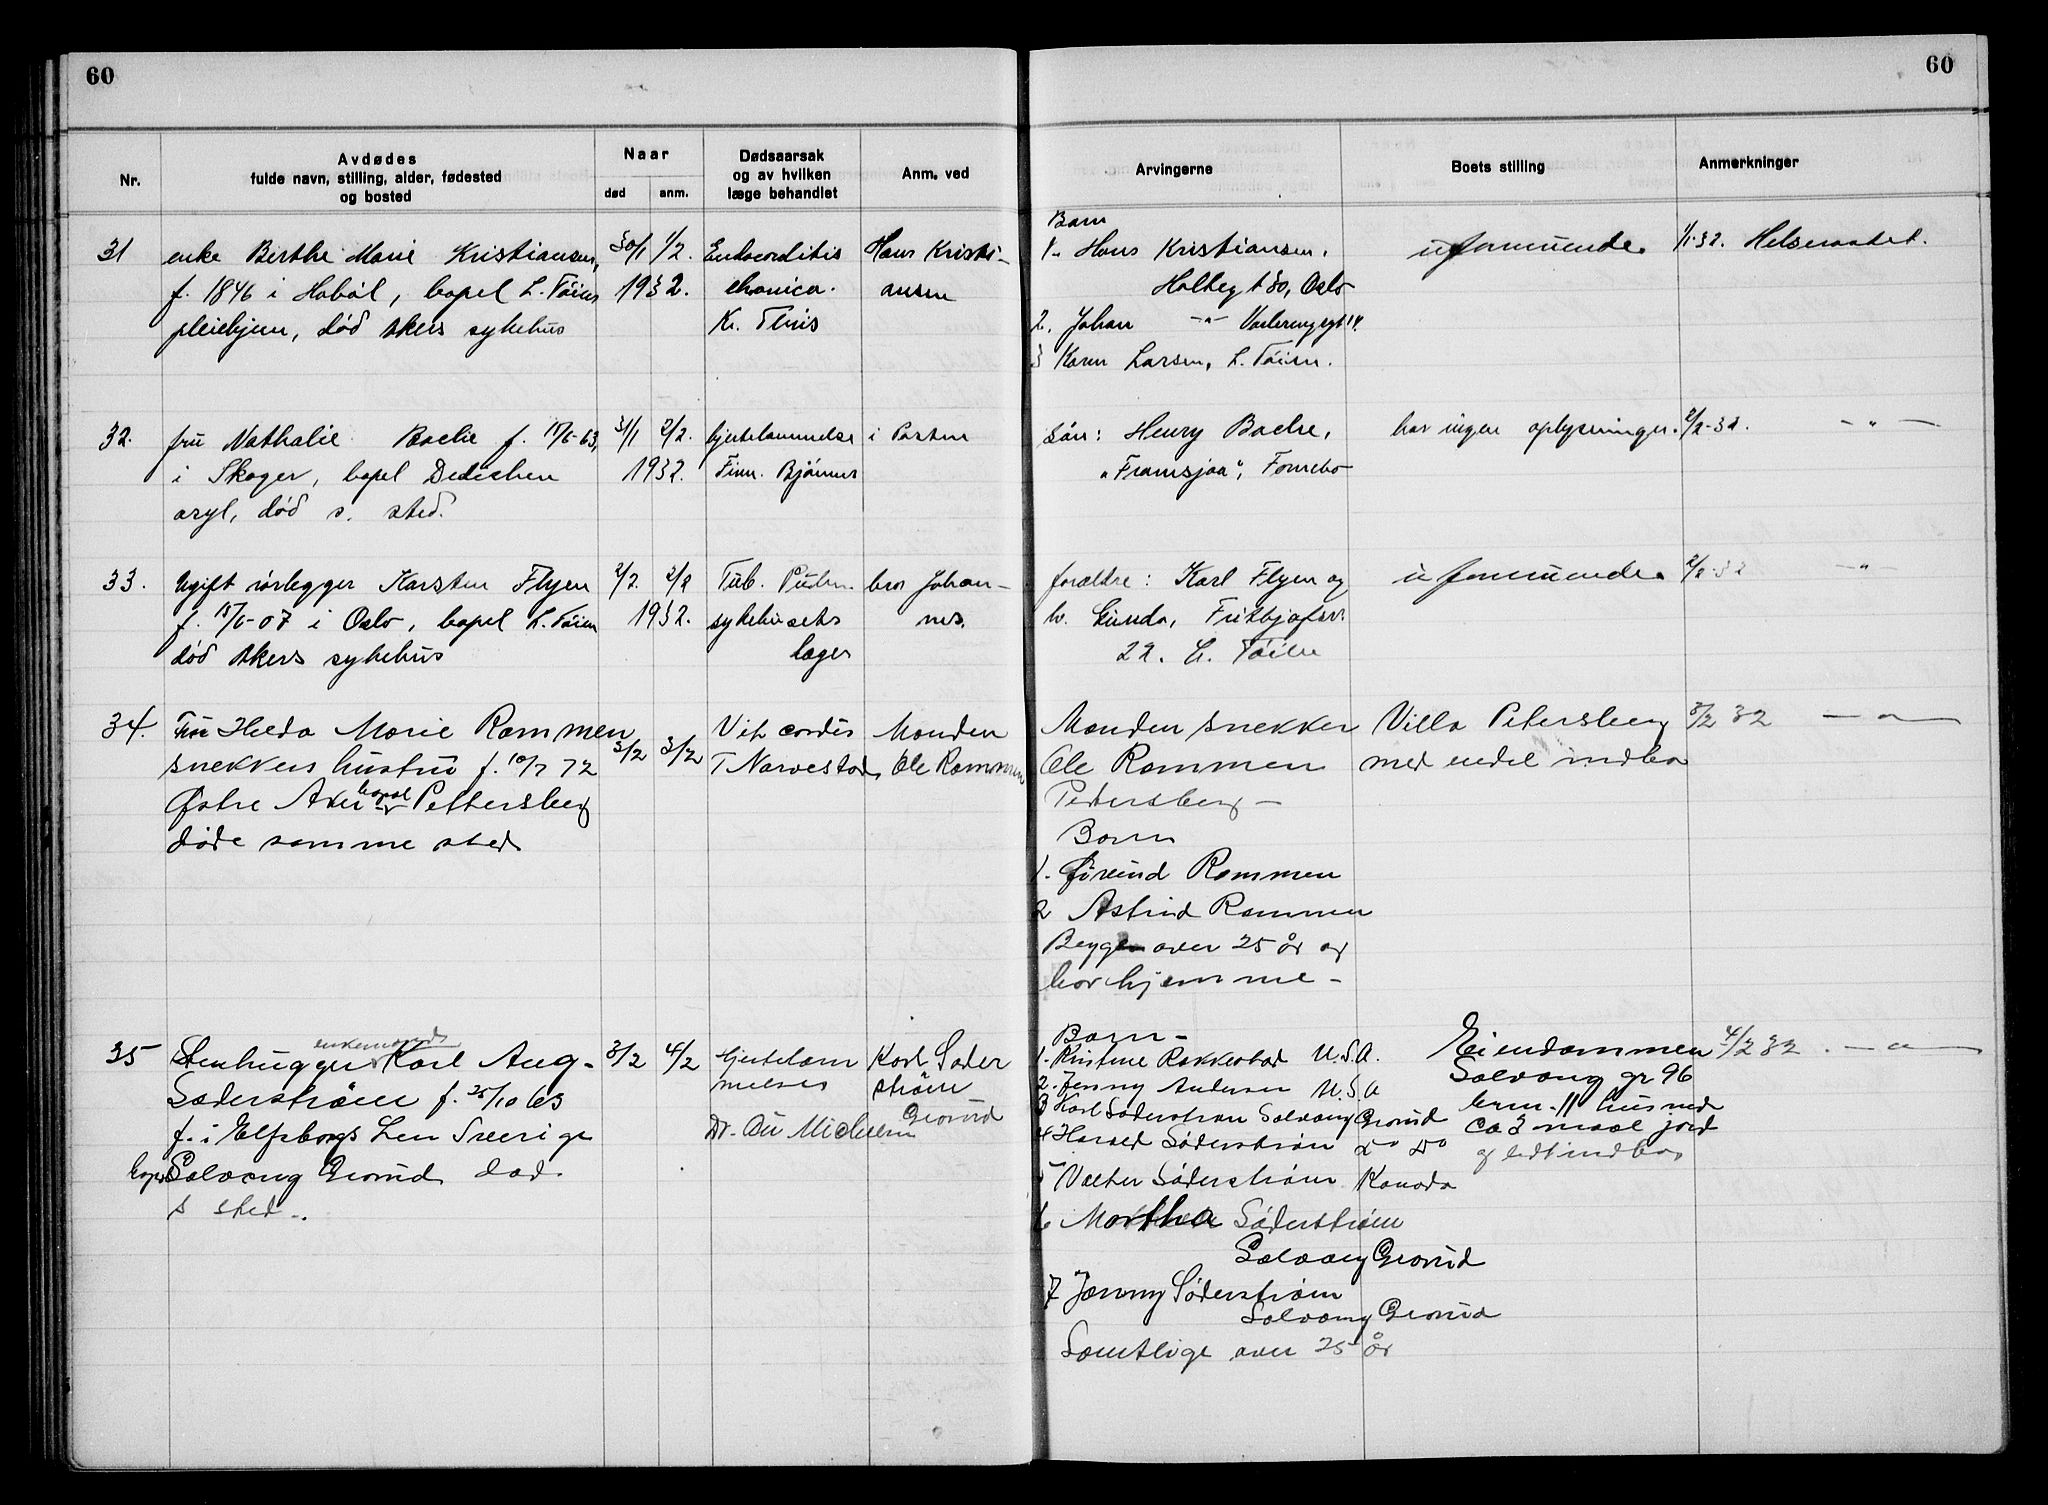 60
60
Nr.
Avdødes
fulde navn, stilling, alder, fødested
og bosted
Naar
død
anm.
Dødsaarsak
og av hvilken
læge behandlet
Anm. ved
Arvingerne
Boets stilling
Anmerkninger
31
enke Berthe Marie Kristiansen,
f. 1846 i Hobøl, bopel L. Tøien
pleiehjem, død Akers sykehus
30/1 1/2.
1932.
Endocorditis
chronica.
Kr. Thuis
Hans Kristi-
ansen
Barn
1. Hans Kristiansen,
Holtegt 30, Oslo
2. Johan -"-
3 Karen Larsen, L. Tøien.
uformuende
Helseraadet.
32.
fru Nathalie Boehe f. 63,
i Skoger, bopel Dedichen
asyl, død s. sted.
31/1 2/2.
1932.
hjertelammelse
Finn. Bjørnes
i Posten
Søn: Henry Boehe,
"Framsjaa", Fornebo
har ingen oplysninger.
2/2-32.
-"-
33.
Ugift rørlegger Karsten Flyen
f. 07 i Oslo, bopel L. Tøien
død Akers sykehus
2/2. 2/2
1932.
Tub. Pulm.
sykehusets
læger
bror Johan-
nes.
forældre: Karl Flyen og
h. Gunda, Frithjofsv.
22. L. Tøien
uformuende
2/2-32
-"-
34.
Fru Helda Marie Rommen
snekkers hustru f. 10/7 72
Østre Aker bopel Pettersberg
døde samme sted
3/2 3/2
Vit cordis
T Narvestad
Manden
Ole Rommen
Manden snekker
Ole Rommen
Pedersberg -
Barn
1. Øivind Rommen
2 Astrid Rommen
Begge over 25 år og
bor hjemme -
Villa Petersberg
med endel indbo
3/2 32
-"-
35
enkemand
Stenhugger Karl Aug-
Søderstrøm f. 25/10 63
f. i Elfsborgs Len Sverige
bopel Solvang Grorud død
s sted -.
3/2 4/2
Hjertelam
melse
Dr. Michelsen
Karl Søder
strøm
Grorud
Barn -
1. Kristine Rakkestad U.S.A.
2. Jenny Andersen U.S.A
3 Karl Søderstrøm Solvang Grorud
4 Harald Søderstrøm do do
5 Valter Søderstrøm Kanada
6 Martha Søderstrøm
Solvang Grorud
7 Jenny Søderstrøm
Solvang Grorud
Samtlige over 25 år
Eiendommen
Solvang gr 96
brm. 11 hus med
ca 3 maal jord
og lidt indbo
4/2 32.
-"-